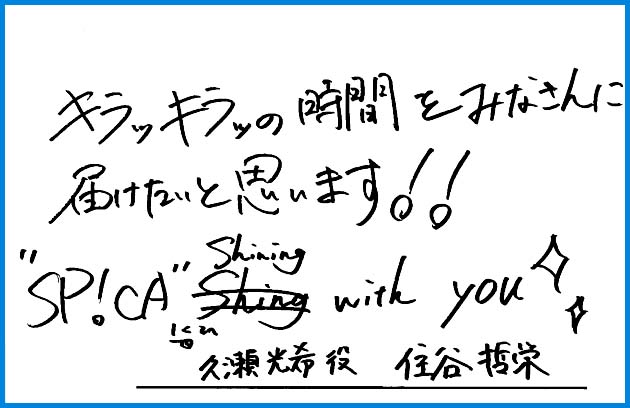 キラッキラッの時間をみなさんに
届けたいと思います!!
Shining
"SP!CA" Shing with you
久瀬光希役 住谷哲栄